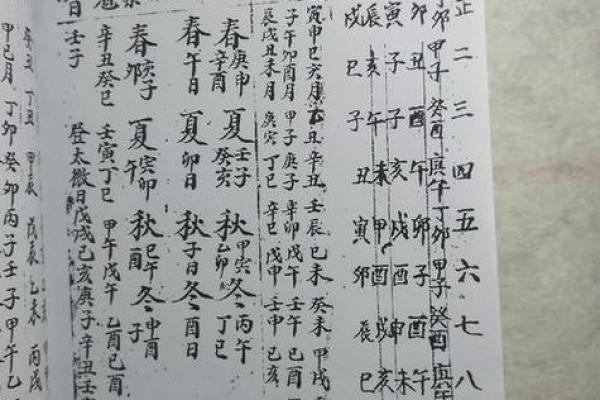 正二三四五六七八
卯甲子癸酉庚午丁卯甲子癸酉庚午
卯丑酉午卯子酉午
寅子子亥戌酉申未
辰亥午未甲戌
戌巳子丑寅卯辰亥
寅申巳亥月丑辛丑壬辰己未癸未甲戌
子午卯酉月甲子庚子辛卯戊午壬午己巳
辰戌丑未月庚寅丁巳辛巳戊申壬申己亥
春庚申辛酉夏壬子癸亥秋甲寅乙卯冬丙午丁巳
春午日夏卯日秋子日冬酉日
春亥子卯夏寅卯午秋巳午酉冬申酉子
辛丑癸巳壬寅丁巳甲午戊午乙酉己酉
日壬子登太微日戊戌己亥庚子辛丑壬
丁丑甲辰戊辰乙未丙戌
甲巳月丁卯癸卯丙子壬子甲午乙